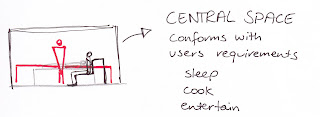 CENTRAL SPACE
Conforms with
users requirements
sleep
cook
entertain